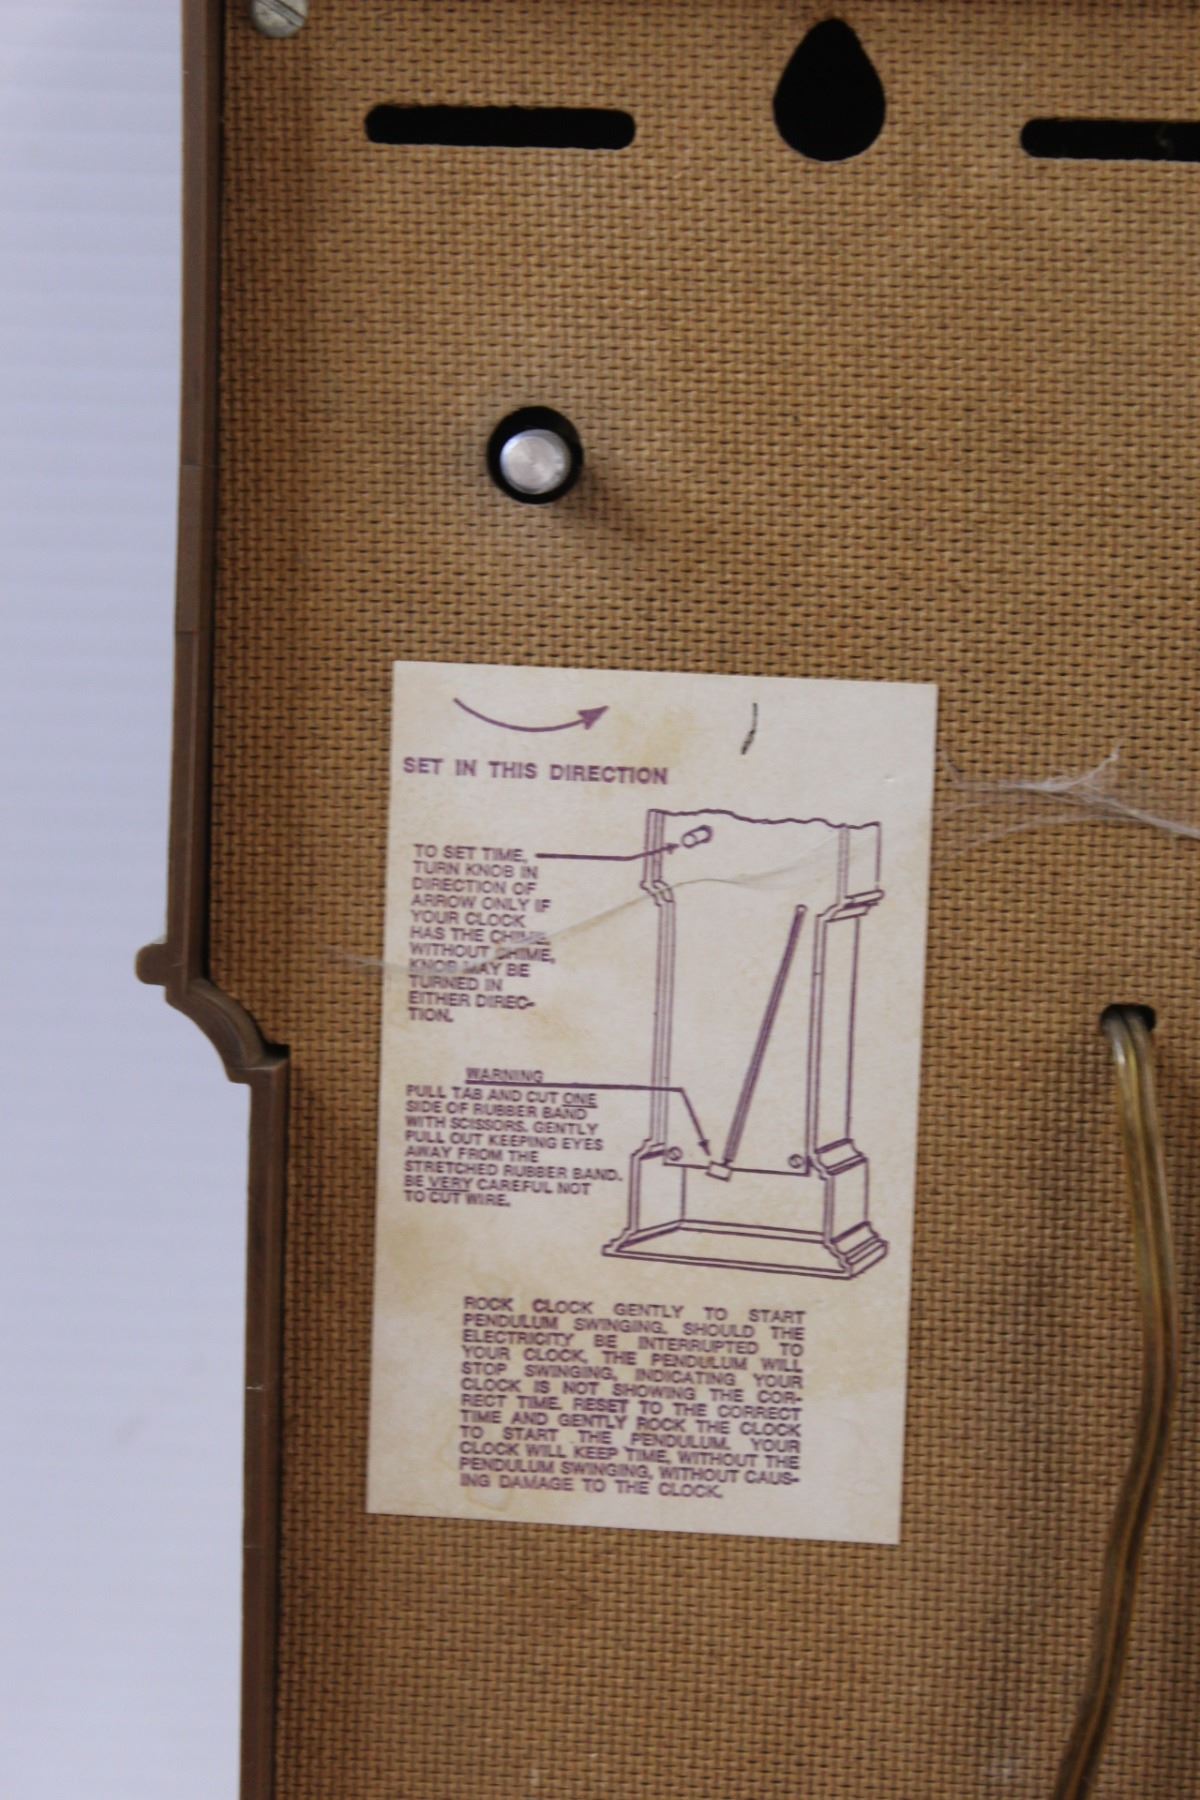 SET IN THIS DIRECTION
TO SET TIME,
TURN KNOB IN
DIRECTION OF
ARROW ONLY IF
YOUR CLOCK
HAS THE CHIME.
WITHOUT CHIME,
KNOB MAY BE
TURNED IN
EITHER DIREC-
TION.
WARNING
PULL TAB AND CUT ONE
SIDE OF RUBBER BAND
WITH SCISSORS. GENTLY
PULL OUT KEEPING EYES
AWAY FROM THE
STRETCHED RUBBER BAND.
BE VERY CAREFUL NOT
TO CUT WIRE.
ROCK CLOCK GENTLY TO START
PENDULUM SWINGING. SHOULD THE
ELECTRICITY BE INTERRUPTED TO
YOUR CLOCK, THE PENDULUM WILL
STOP SWINGING, INDICATING YOUR
CLOCK IS NOT SHOWING THE COR-
RECT TIME. RESET TO THE CORRECT
TIME AND GENTLY ROCK THE CLOCK
TO START THE PENDULUM. YOUR
CLOCK WILL KEEP TIME, WITHOUT THE
PENDULUM SWINGING, WITHOUT CAUS-
ING DAMAGE TO THE CLOCK.